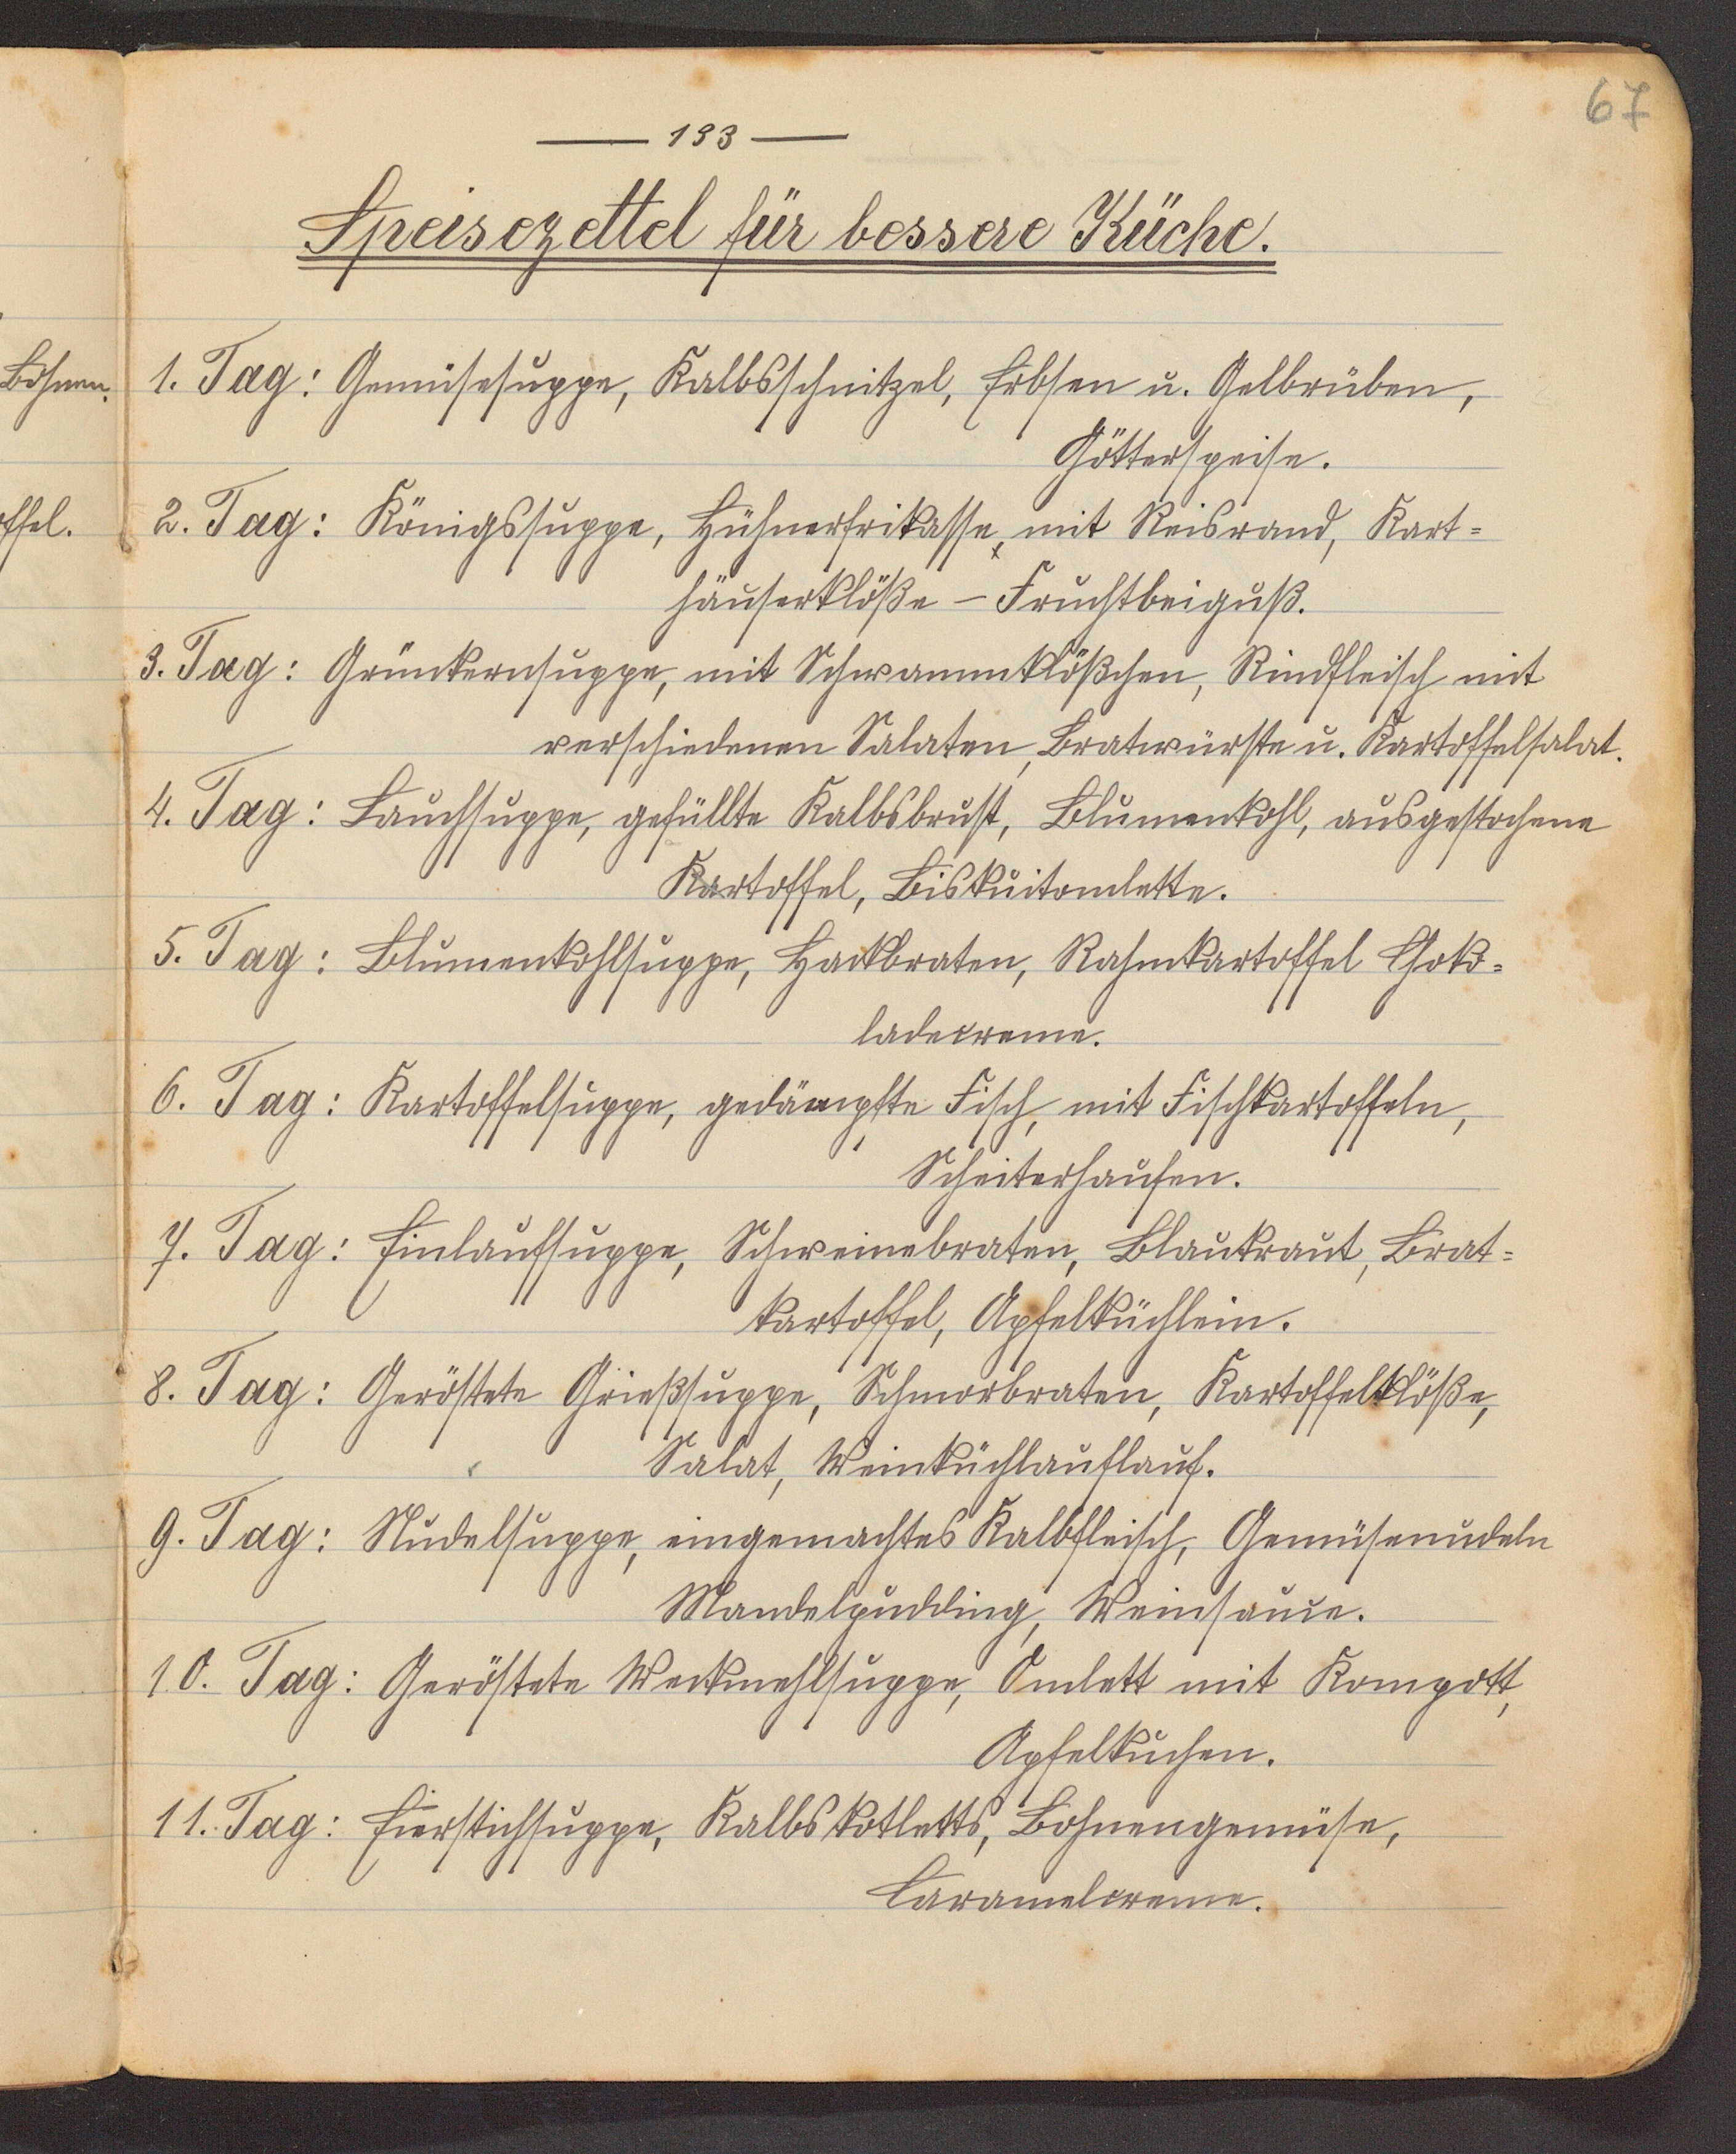 67
— 133 —
Speisezettel für bessere Küche.
Bohnen.
1. Tag: Gemüsesuppe, Kalbsschnitzel, Erbsen u. Gelbrüben,
Götterspeise.
ffel.
2. Tag: Königssuppe, Hühnerfrikasse, mit Reisrand, Kart=
häuserklöße – Fruchtbeiguß.
3. Tag: Grünkernsuppe, mit Schwammklößchen, Rindfleisch mit
verschiedenen Salaten, Bratwürste u. Kartoffelsalat.
4. Tag: Lauchsuppe, gefüllte Kalbsbrust, Blumenkohl, ausgestochene
Kartoffel, Biskuitomlette.
5. Tag: Blumenkohlsuppe, Hackbraten, Rahmkartoffel Choko=
ladecreme.
6. Tag: Kartoffelsuppe, gedämpfte Fisch, mit Fischkartoffeln,
Scheiterhaufen.
7. Tag: Einlaufsuppe, Schweinebraten, Blaukraut, Brat=
kartoffel, Apfelküchlein.
8. Tag: Geröstete Grießsuppe, Schmorbraten, Kartoffelklöße,
Salat, Weinküchlauflauf.
9. Tag: Nudelsuppe, eingemachtes Kalbfleisch, Gemüsenudeln
Mandelpudding, Weinsauce.
10. Tag: Geröstete Weckmehlsuppe, Omlett mit Kompott,
Apfelkuchen.
11. Tag: Eierstichsuppe, Kalbskotletts, Bohnengemüse,
Caramelcreme.